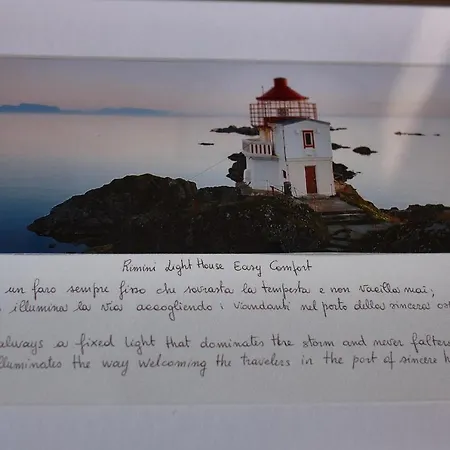 Rimini Light House Easy Comfort
un faro sempre fisso che sovrasta la tempesta e non vacilla mai;
illumina la via accogliendo i viandanti nel porto della sincera
always a fixed light that dominates the storm and never falters
illuminates the way welcoming the travelers in the port of sincere